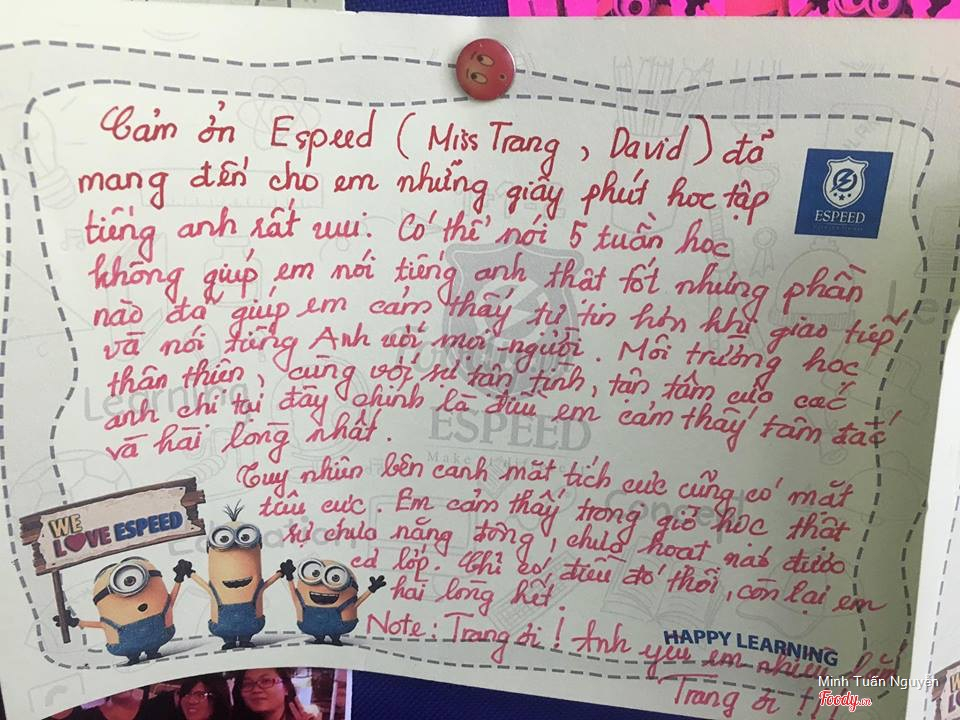 Cảm ơn Espeed ( Miss Trang , David ) đã
mang đến cho em những giây phút học tập
tiếng anh rất vui. Có thể nói 5 tuần học
không giúp em nói tiếng anh thật tốt nhưng phần
nào đã giúp em cảm thấy tự tin hơn khi giao tiếp
và nói tiếng Anh với mọi người. Môi trường học
thân thiện, cùng với sự tận tình, tận tâm của các
anh chị tại đây chính là điều em cảm thấy tâm đắc
và hài lòng nhất.
Tuy nhiên bên cạnh mặt tích cực cũng có mặt
tiêu cực. Em cảm thấy trong giờ học thật
sự chưa năng động, chưa hoạt náo được
cả lớp. Chỉ có điều đó thôi, còn lại em
hài lòng hết!
Note: Trang ơi! Anh yêu em nhiều lắm
Trang ơi!!
ESPEED
ESPEED
Learning
Concept
WE
LOVE ESPEED
HAPPY LEARNING
Minh Tuấn Nguyễn
Foody.vn